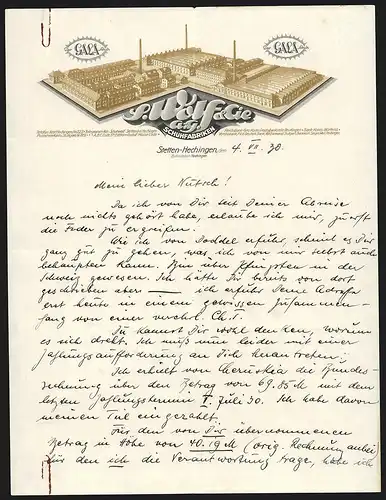 GALA
GALA
P. Wolf & Cie
SCHUHFABRIKEN
Stetten-Hechingen, den 4. VII. 30.
Mein lieber Nutsch!
Da ich von Dir seit Deiner Abreise
noch nichts gehört habe, erlaube ich mir, zuerst
die Feder zu ergreifen.
Wie ich von Doddel erfuhr, scheint es Dir
ganz gut zu gehen, was ich von mir selbst auch
behaupten kann. Bin über Pfingsten in der
Schweiz gewesen. Ich hätte Dir bereits von dort
geschrieben aber — ich erfuhr Deine Adresse
erst heute in einem gewissen Zusammen-
hang von einer verehrl. Ch. T.
Du kannst Dir wohl denken, worum
es sich dreht. Ich muß nun leider mit einer
Zahlungsaufforderung an Dich herantreten:
Ich erhielt von Cheruskia die Bundes-
rechnung über den Betrag von 69.85 M mit dem
letzten Zahlungstermin 1. Juli 30. Ich habe davon
meinen Teil einbezahlt.
Für den von Dir übernommenen
Betrag in Höhe von 40.19 M (orig. Rechnung anbei)
für den ich die Verantwortung trage, habe ich